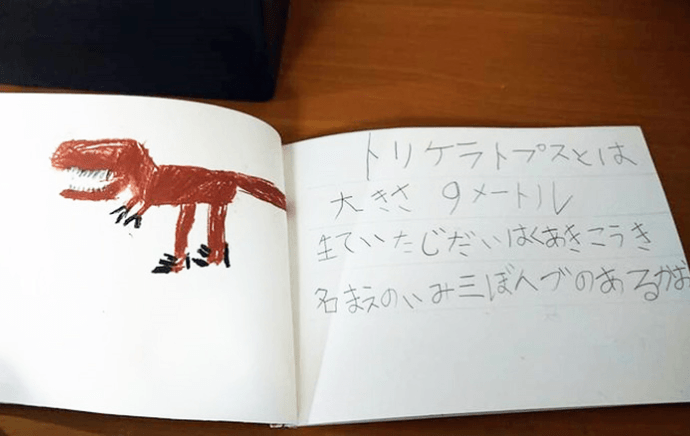 トリケラトプスとは
大きさ 9メートル
生ていたじだいはくあきこうき
名まえのいみ三ぼんづのあるがお